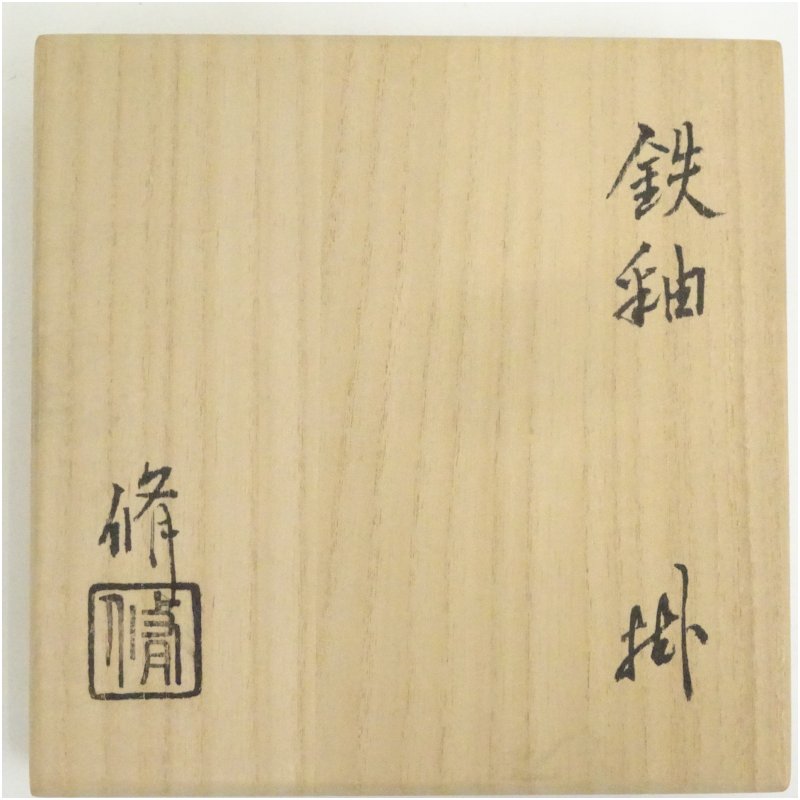 鉄釉 掛
脩
脩